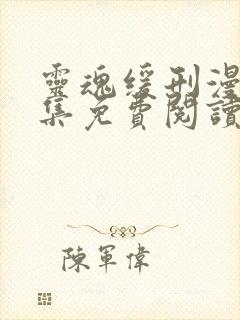 靈魂緩刑漫
集免費閱讀
陳軍偉